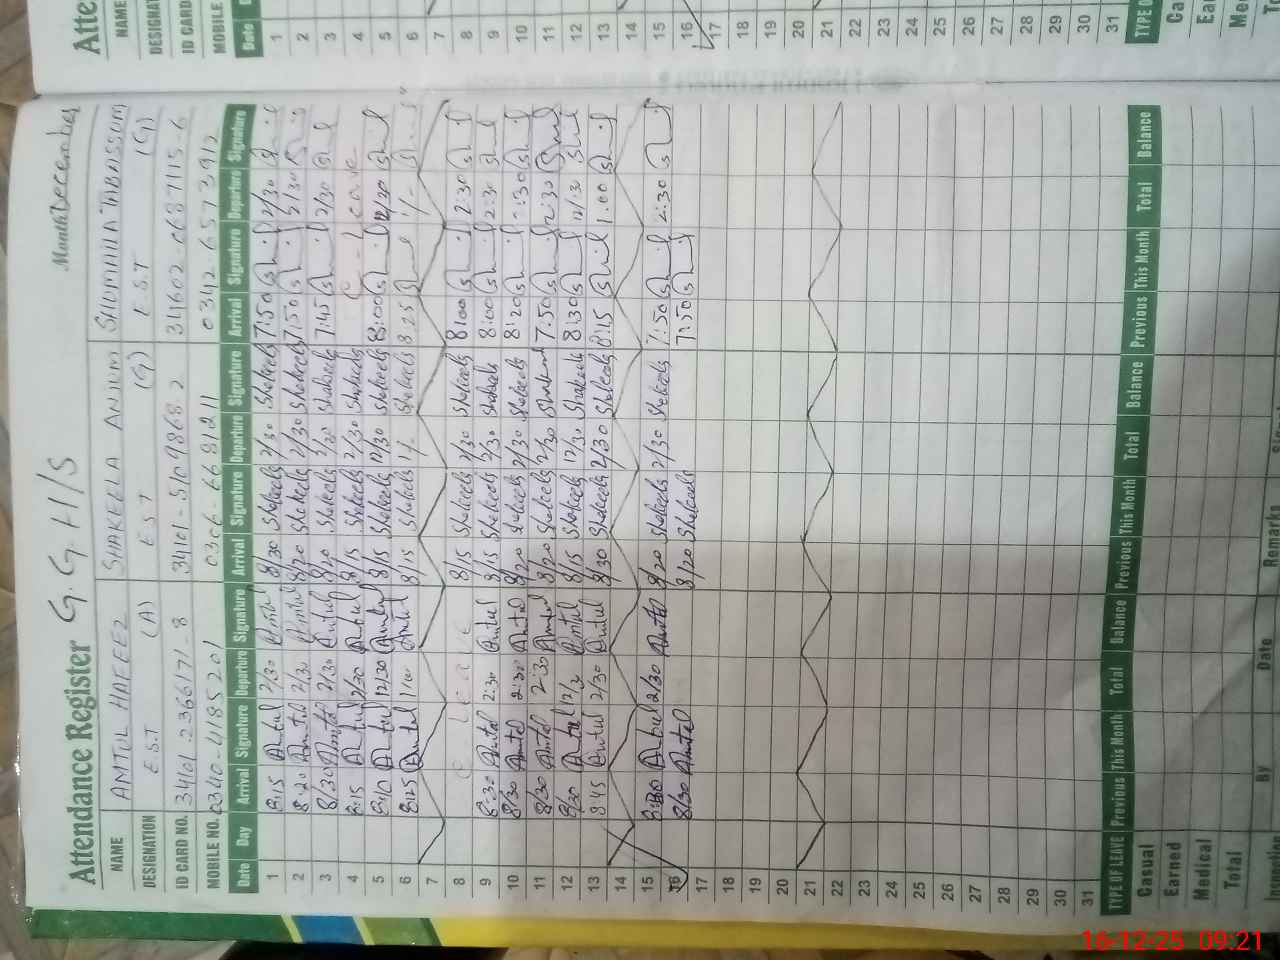 Attendance Register G. G. H/S Month December
NAME AMTUL HAFEEZ SHAKEELA ANJUM SHUMAILA TABASSUM
DESIGNATION E.S.T (A) E S T (G) E.S.T (G)
ID CARD NO. 34101.2366171-8 34101-5109868.2 31602.0687115.6
MOBILE NO. 0340-4185201 0306-6681211 0342.6573912
Date Day Arrival Signature Departure Signature Arrival Signature Departure Signature Arrival Signature Departure Signature
1 8:15 Amtul 2/30 Amtul 8/30 Shakeela 2/30 Shakeela 7:50 2/30
2 8:20 Amtul 2/30 Amtul 8/20 Shakeela 2/30 Shakeela 7:50 2/30
3 8/30 Amtul 2/30 Amtul 8/20 Shakeela 2/30 Shakeela 7:45 2/30
4 8:15 Amtul 2/30 Amtul 8/15 Shakeela 2/30 Shakeela C - Leave
5 8:10 Amtul 12/30 Amtul 8/15 Shakeela 12/30 Shakeela 8:00 12/30
6 8:25 Amtul 1/00 Amtul 8/15 Shakeela 1/- Shakeela 8:25 1/-
7
8 8/15 Shakeela 2/30 Shakeela 8:00 2:30
9 8:30 Amtul 2:30 Amtul 8/15 Shakeela 2/30 Shakeela 8:00 2:30
10 8/30 Amtul 2:30 Amtul 8/20 Shakeela 2/30 Shakeela 8:20 2:30
11 8/30 Amtul 2:30 Amtul 8/20 Shakeela 2/30 Shakeela 7:50 2:30
12 8/30 Amtul Amtul 8/15 Shakeela 12/30 Shakeela 8:30 12/30
13 8:45 Amtul 2/30 Amtul 8/30 Shakeela 2/30 Shakeela 8:15 1:00
14
15 Amtul 2/30 Amtul 8/20 Shakeela 2/30 Shakeela 7:50 2:30
16 8/30 Amtul 8/20 Shakeela 7:50
17
18
19
20
21
22
23
24
25
26
27
28
29
30
31
TYPE OF LEAVE Previous This Month Total Balance Previous This Month Total Balance Previous This Month Total Balance
Casual
Earned
Medical
Total
By Date Remarks
Atte
NAME
DESIGNA
ID CARD
MOBILE
Date
1
2
3
4
5
6
7
8
9
10
11
12
13
14
15
16
17
18
19
20
21
22
23
24
25
26
27
28
29
30
31
TYPE O
Ca
Ear
Me
To
16-12-25 09:21